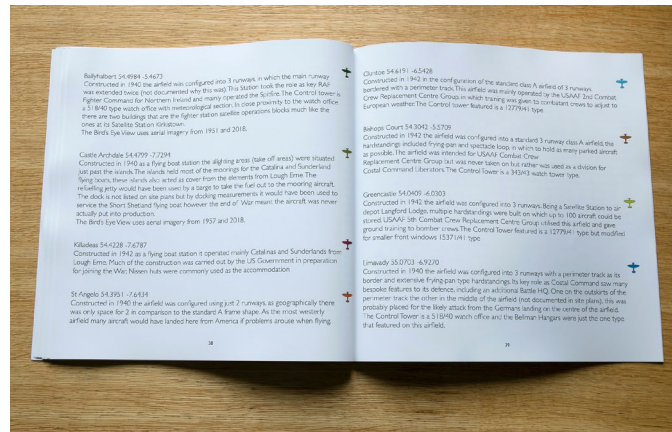 Ballyhalbert 54.4984 -5.4673
Constructed in 1940 the airfield was configured into 3 runways, in which the main runway
was extended twice (not documented why was this). This Station took the role as key RAF
Fighter Command for Northern Ireland and mainly operated the Spitfire. The Control tower is
a 518/40 type watch office with meteorological section. In close proximity to the watch office
there are two buildings that are the fighter station satellite operations blocks much like the
ones at its Satellite Station Kirkistown.
The Bird's Eye View uses aerial imagery from 1951 and 2018.
Castle Archdale 54.4799 -7.7294
Constructed in 1940 as a flying boat station the alighting areas (take off areas) were situated
just past the islands. The islands held most of the moorings for the Catalina and Sunderland
flying boats, these islands also acted as cover from the elements from Lough Erne. The
refuelling jetty would have been used by a barge to take the fuel out to the mooring aircraft.
The dock is not listed on site plans but by docking measurements it would have been used to
service the Short Shetland flying boat however the end of War mean the aircraft was never
actually put into production.
The Bird's Eye View uses aerial imagery from 1957 and 2018.
Killadeas 54.4228 -7.6787
Constructed in 1942 as a flying boat station it operated mainly Catalinas and Sunderlands from
Lough Erne. Much of the construction was carried out by the US Government in preparation
for joining the War. Nissen huts were commonly used as the accommodation
St Angelo 54.3951 -7.6434
Constructed in 1940 the airfield was configured using just 2 runways, as geographically there
was only space for 2 in comparison to the standard A frame shape. As the most westerly
airfield many aircraft would have landed here from America if problems arouse when flying.
38
Cluntoe 54.6191 -6.5428
Constructed in 1942 in the configuration of the standard class A airfield of 3 runways
bordered with a perimeter track. This airfield was mainly operated by the USAAF 2nd Combat
Crew Replacement Centre Group in which training was given to combatant crews to adjust to
European weather. The Control tower featured is a 12779/41 type
Bishops Court 54.3042 -5.5709
Constructed in 1942 the airfield was configured into a standard 3 runway class A airfield, the
hardstandings included frying-pan and spectacle loop, in which to hold as many parked aircraft
as possible. The airfield was intended for USAAF Combat Crew
Replacement Centre Group but was never taken on but rather was used as a division for
Costal Command Liberators. The Control Tower is a 343/43 watch tower type.
Greencastle 54.0409 -6.0303
Constructed in 1942 the airfield was configured into 3 runways. Being a Satellite Station to air
depot Langford Lodge, multiple hardstandings were built on which up to 100 aircraft could be
stored USAAF 5th Combat Crew Replacement Centre Group utilised this airfield and gave
ground training to bomber crews. The Control Tower featured is a 12779/41 type but modified
for smaller front windows 15371/41 type
Limavady 55.0703 -6.9270
Constructed in 1940 the airfield was configured into 3 runways with a perimeter track as its
border and extensive frying-pan type hardstandings. Its key role as Costal Command saw many
bespoke features to its defence, including an additional Battle HQ. One on the outskirts of the
perimeter track the other in the middle of the airfield (not documented in site plans), this was
probably placed for the likely attack from the Germans landing on the centre of the airfield.
The Control Tower is a 518/40 watch office and the Bellman Hangars were just the one type
that featured on this airfield.
39